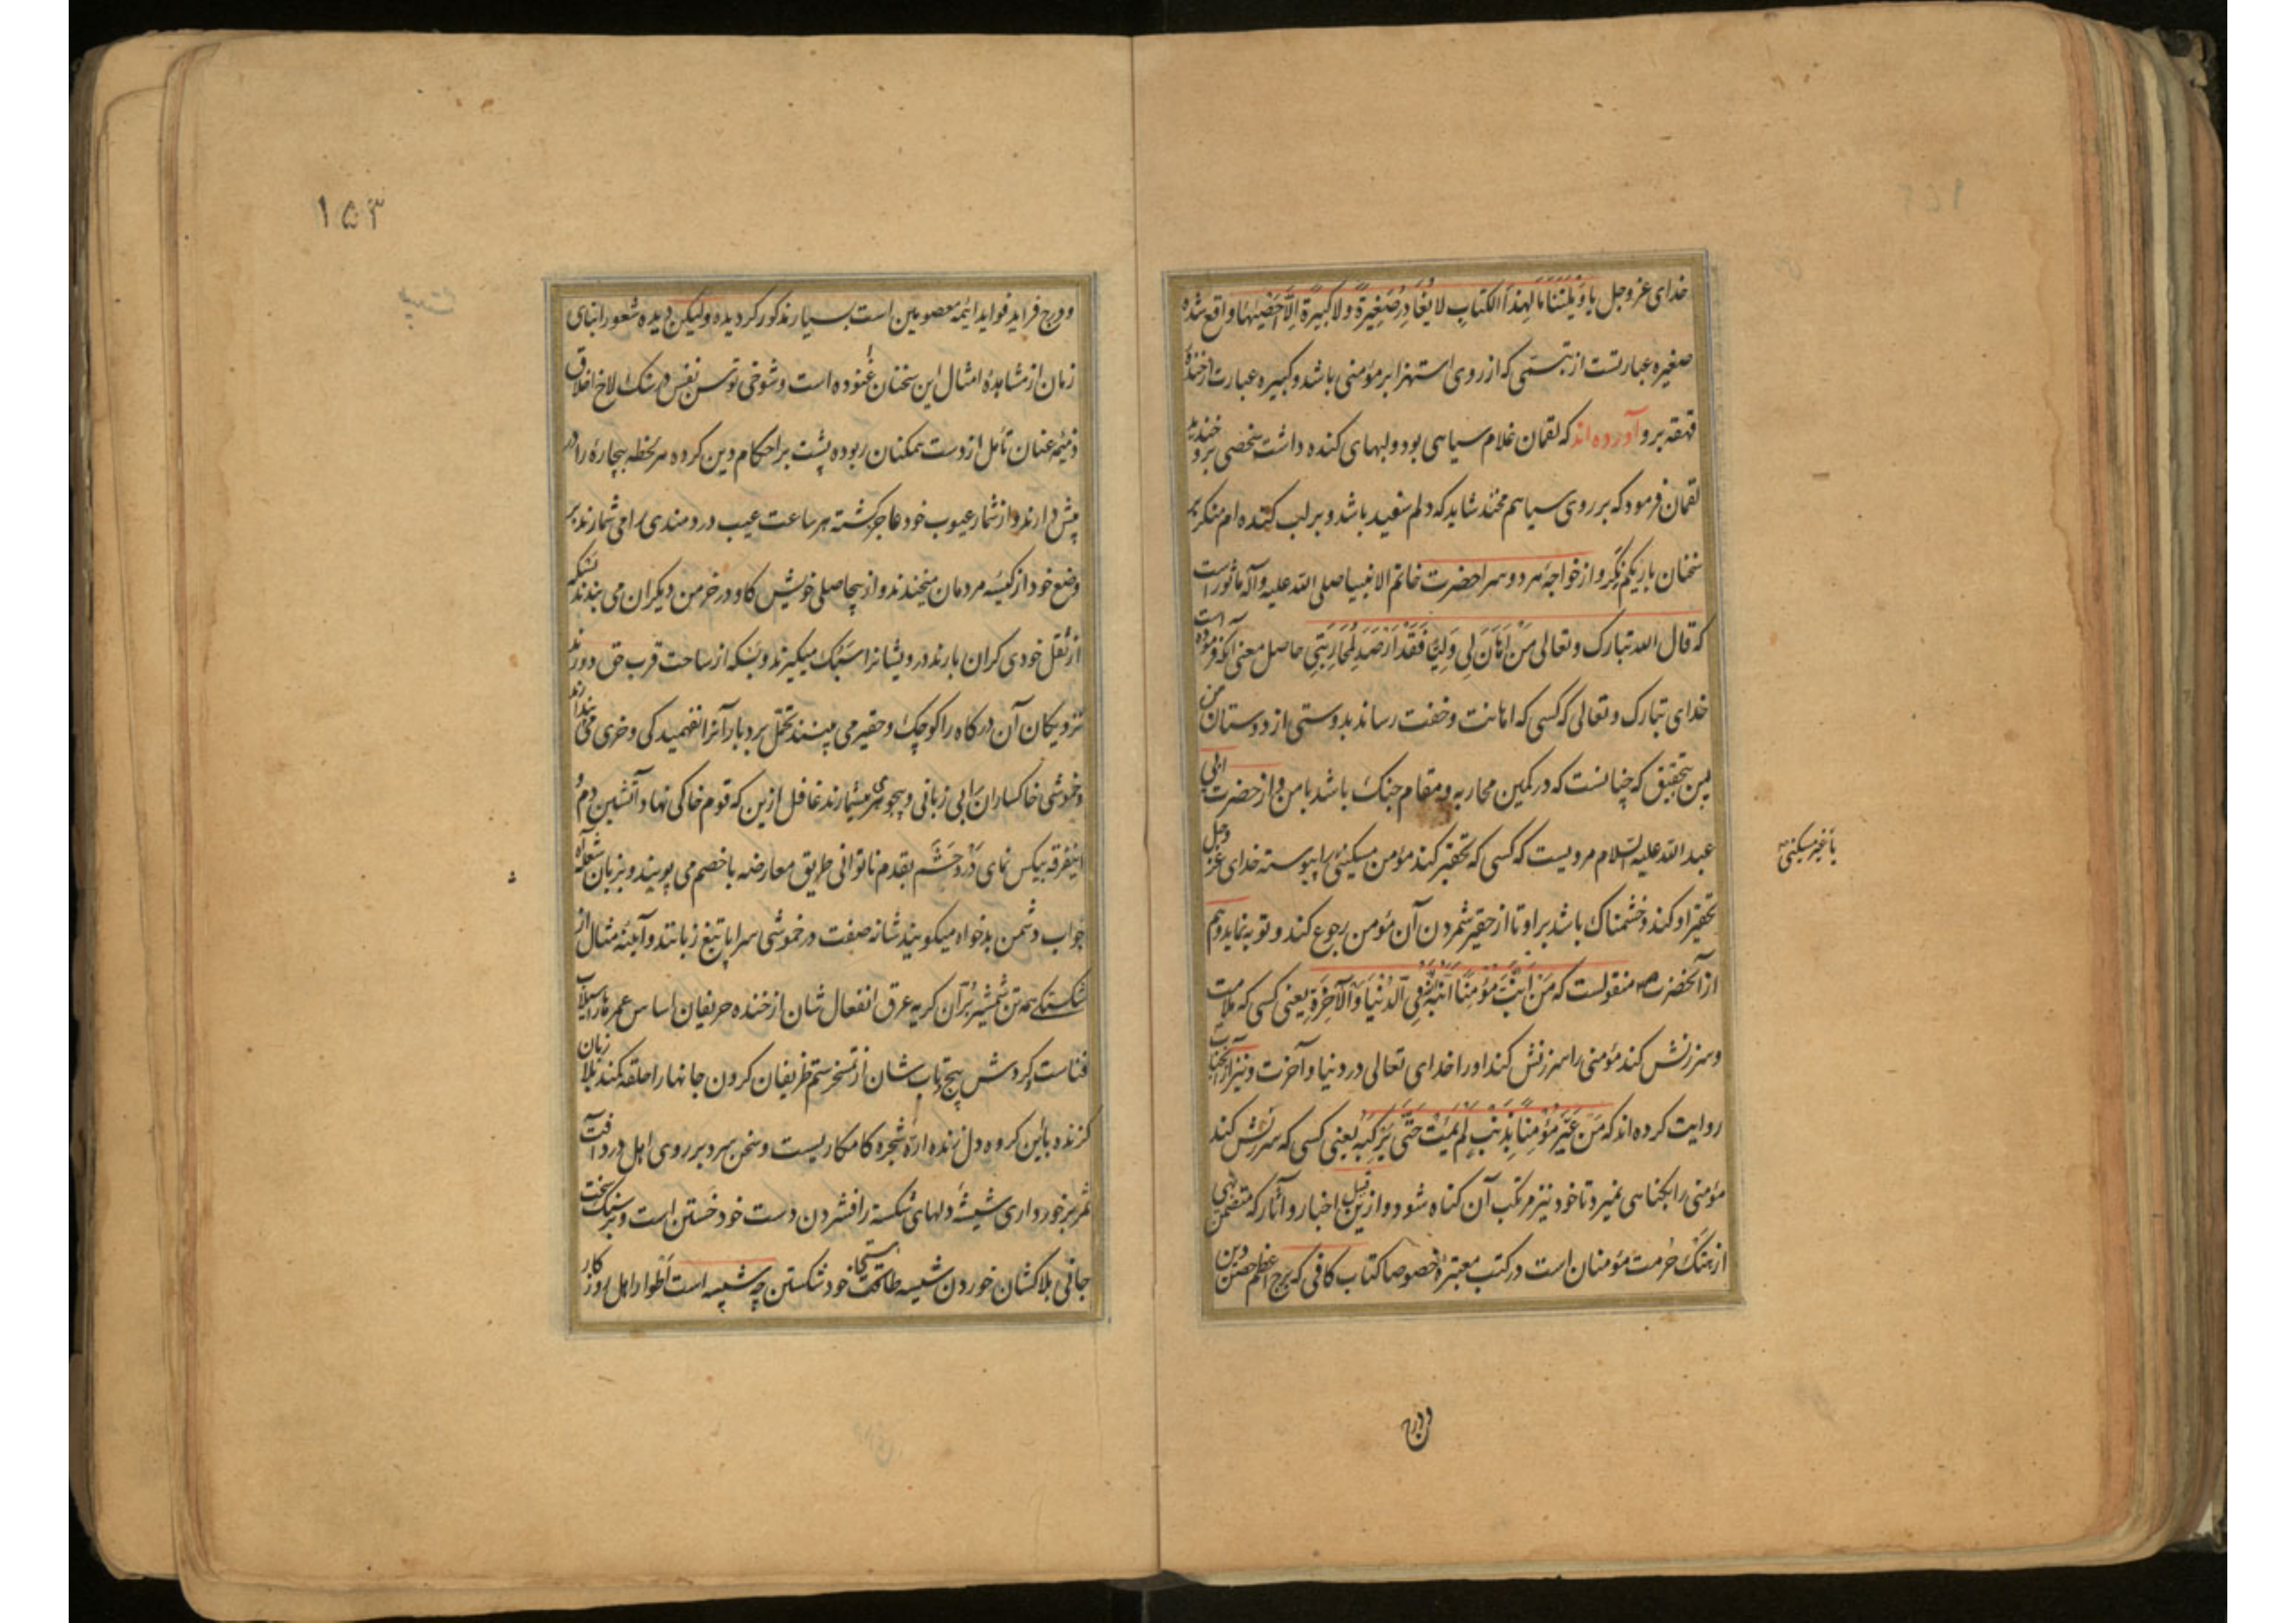 خدای عز و جل یا وَیْلَتَنا مَا لِهذَا الکتابِ لا یُغادِرُ صَغِیرَةً و لا کَبِیرَةً اِلّا اَحْصَیٰهَا واقع شده
صغیره عبارتست از تبسّمی که از روی استهزا بر مؤمنی باشد و کبیره عبارت از خندهٔ
قهقه برو آورده اند که لقمان غلام سیاهی بود و لبهای کنده داشت شخصی برو خندید
لقمان فرمود که بر روی سیاهم مخند شاید که دلم سفید باشد و بر لب کنده ام منکر که
سخنان باریکم نکر و از خواجهٔ هر دو سرا حضرت خاتم الانبیا صلی الله علیه و آله ماثور است
که قال الله تبارک و تعالی مَنْ اَهَانَ لِی وَلِیًّا فَقَدْ اَرْصَدَ لِمُحَارَبَتِی حاصل معنی آنکه فرموده است
خدای تبارک و تعالی که کسی که اهانت و خفت رساند بدوستی از دوستان من
پس بتحقیق که چنانست که در کمین محاربه و مقام جنک باشد با من و از حضرت ابی
عبد الله علیه السلام مرویست که کسی که تحقیر کند مؤمن مسکینی را پیوسته خدای عز و جل
یا غیر مسکینی
تحقیر او کند و خشمناک باشد بر او تا از حقیر شمردن آن مؤمن رجوع کند و توبه نماید و هم
از آنحضرت ص منقولست که مَنْ اَنَّبَ مُؤْمِنًا اَنَّبَهُ اللهُ فِی الدُّنْیَا وَ الْآخِرَةِ یعنی کسی که ملامت
و سرزنش کند مؤمنی را سرزنش کند او را خدای تعالی در دنیا و آخرت و نیز از آنجناب
روایت کرده اند که مَنْ عَیَّرَ مُؤْمِنًا بِذَنْبٍ لَمْ یَمُتْ حَتَّی یَرْکَبَهُ یعنی کسی که سرزنش کند
مؤمنی را بکناهی نمیرد تا خود نیز مرتکب آن کناه شود و ازین قبیل اخبار و آثار که متضمن نهی
از هتک حُرمت مؤمنان است در کتب معتبره و خصوصا کتاب کافی که برج اعظم حصن دین
و درج
۱۵۳
و درج فراید فواید ائمه معصومین است بسیار مذکور کردیده ولیکن دیده شعور ابنای
زمان از مشاهدهٔ امثال این سخنان غنوده است و شوخی توسن نفس در سنک لاخ اخلاق
ذمیمه عنان تأمل از دست همکنان ربوده پشت بر احکام دین کرده هر لحظه بیچارهٔ را در
پیش دارند و از شمار عیوب خود عاجز کشته هر ساعت عیب دردمندی را می شمارند بر
وضع خود از کیسهٔ مردمان میخندند و از بیحاصلی خویش کاو در خرمن دیکران می بندند بسکه
از ثقل خودی کران بارند درویشانرا سَبُک میکیرند و بسکه از ساحت قرب حق دورند
نزدیکان آن درکاه را کوچک و حقیر می بینند تحمّل بردبارانرا نفهمیدکی و خری می پندارند
و خموشی خاکساران را بی زبانی و بیجوهری میشمارند غافل ازین که قوم خاکی نهاد آتشین دم و
اینفرقه بیکس نمای بقدم ناتوانی طریق معارضه با خصم می پویند و بزبان شعله آه
جواب دشمن بدخواه میکویند شانه صفت در خموشی سراپا تیغ زبانند و آینه مثال از
شکستکی همه تن شمشیر بُرّان کریه عرق انفعال شان از خنده حریفان اساس عمر ها را سیلاب
فناست و کردش پیچ و تاب شان از تمسخر ستم ظریفان کردن جانها را حلقه کمند بلا زبان
کزنده باین کروه دل زنده ارّه شجره کامکاریست و سخن سرد بر روی اهل درد آفت
ثمر برخورداری شیشهٔ دلهای شکسته را فشردن دست خود خَستن است و بر سنک سخت
جانی بلاکشان خوردن شیشه طاقت خود شکستن چه شبیه است اَطوار اهل روزکار